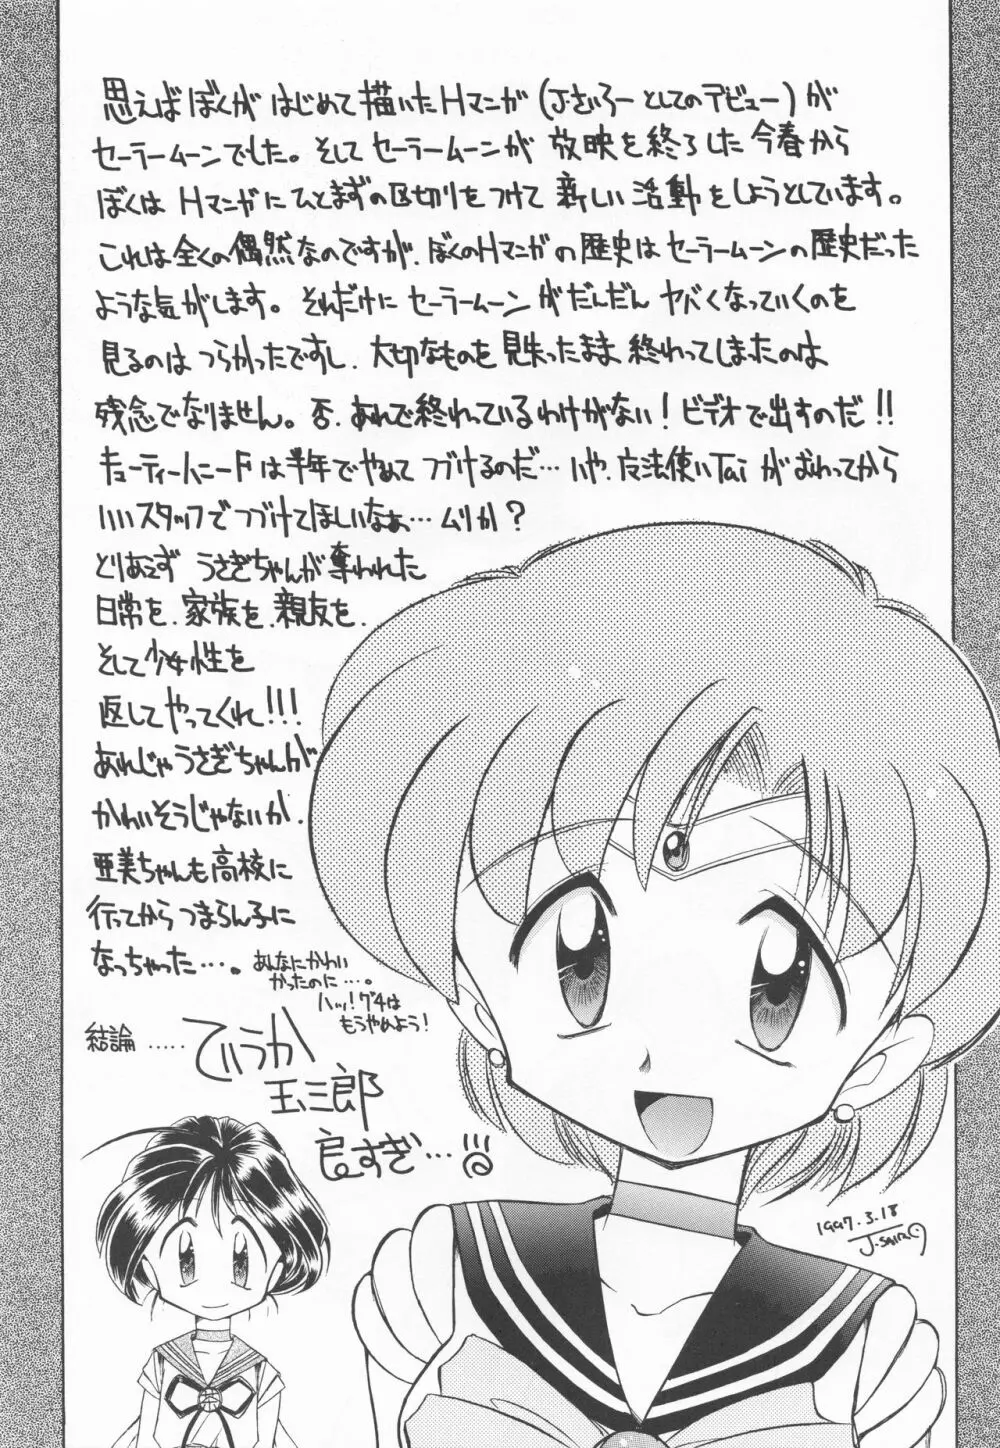 思えばぼくがはじめて描いたHマンガ(J.さいろーとしてのデビュー)が
セーラームーンでした。そしてセーラームーンが放映を終了した今春から
ぼくはHマンガにひとまずの区切りをつけて新しい活動をしようとしています。
これは全くの偶然なのですが、ぼくのHマンガの歴史はセーラームーンの歴史だった
ような気がします。それだけにセーラームーンがだんだんヤバくなっていくのを
見るのはつらかったですし、大切なものを見失ったまま終わってしまったのは
残念でなりません。否、あれで終れているわけがない!ビデオで出すのだ!!
キューティーハニーFは半年でやめてつづけるのだ…いや、魔法使いTaiがおわってから
いいスタッフでつづけてほしいなぁ…ムリか?
とりあえずうさぎちゃんが奪われた
日常を、家族を、親友を、
そして少女性を
返してやってくれ!!!
あれじゃうさぎちゃんが
かわいそうじゃないか。
亜美ちゃんも高校に
行ってからつまらん子に
なっちゃった…。
あんなにかわい
かったのに…。
ハッ!グチは
もうやめよう!
結論……
てゆうか
玉三郎
良すぎ…
1997.3.18
J.SAIRO